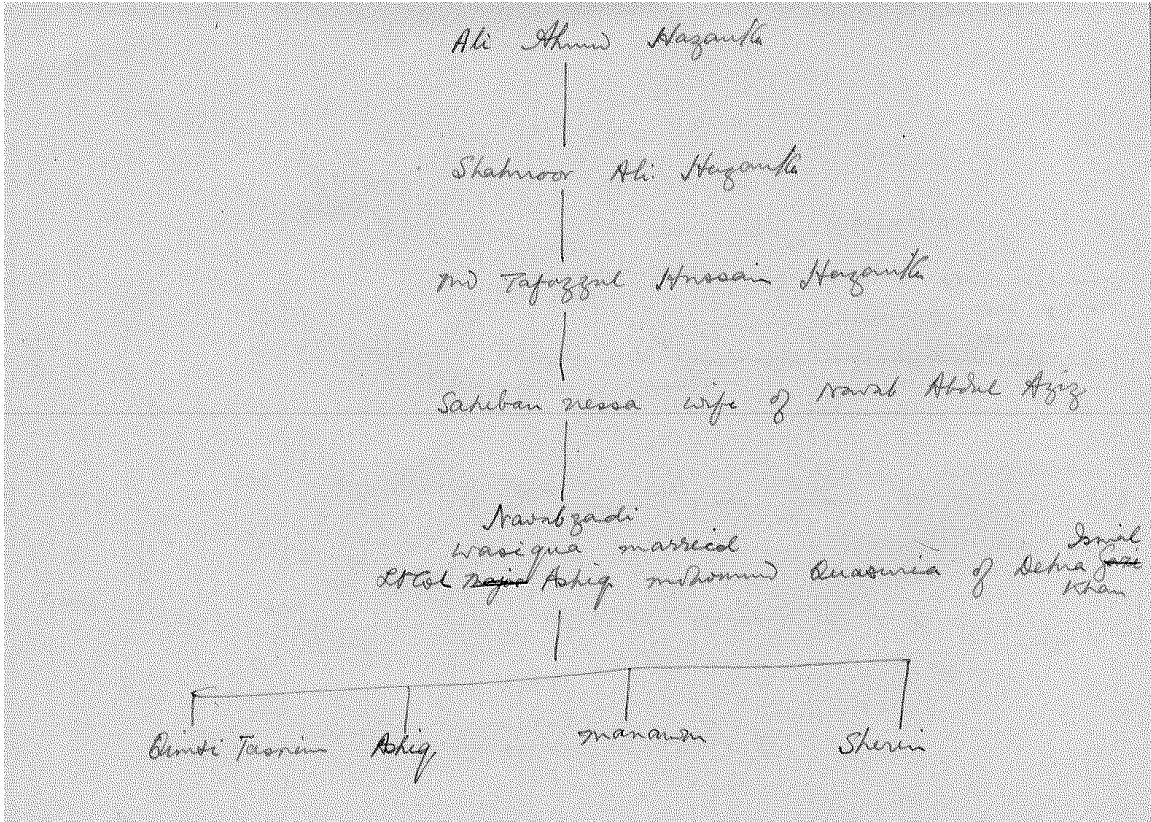 Ali Ahmd Hazarika
Shahnoor Ali Hazarika
Md Tafazzul Hussain Hazarika
Saheban nessa wife of Nawab Abdul Aziz
Nawabzadi
wasiqua married
Lt Col Major Ashiq of Dehra Ismial
Khan
Tasnim Ashiq Sherin